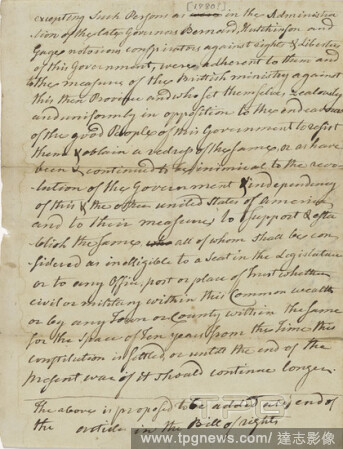 [1780]
excepting Such Persons as in the Administra
tion of the late Governors Bernard, Hutchinson and
Gage notorious conspirators against Right & Liberties
of this Government, were adherent to them and
to the measure of the British ministry against
this then Province and who set themselves Zealously
and uniformly in opposition to the endeavours
of the good People of this Government to resist
them & obtain a redress of the same, or as have
been & continued to be inimical to the revo
lution of the Government & independency
of this & the other united States of America
and to their measures, to Support & esta
blish the same, all of whom shall be con
sidered as ineligible to a seat in the Legislature
or to any Office, post or place of Trust whatever
civil or military within this Common wealth
or by any Town or County within the same
for the space of Ten years from the Time this
constitution is settled, or until the end of the
present war if it should continue longer.
The above is proposed to be added at end of
the article in the Bill of rights
www.tpgnews.com / 達志影像